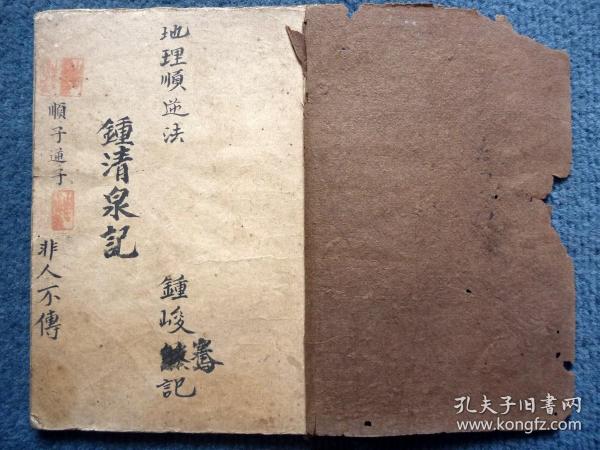 地理順逆法
鍾清泉記
鍾峻騫記
順子逆子
非人不傳
孔夫子旧书网
www.kongfz.com